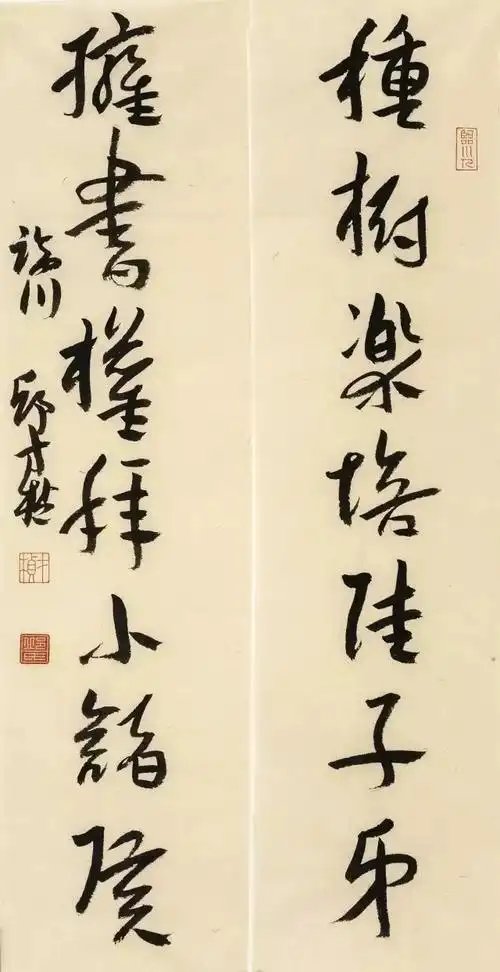 種樹樂培佳子弟
擁書權拜小諸侯
臨川